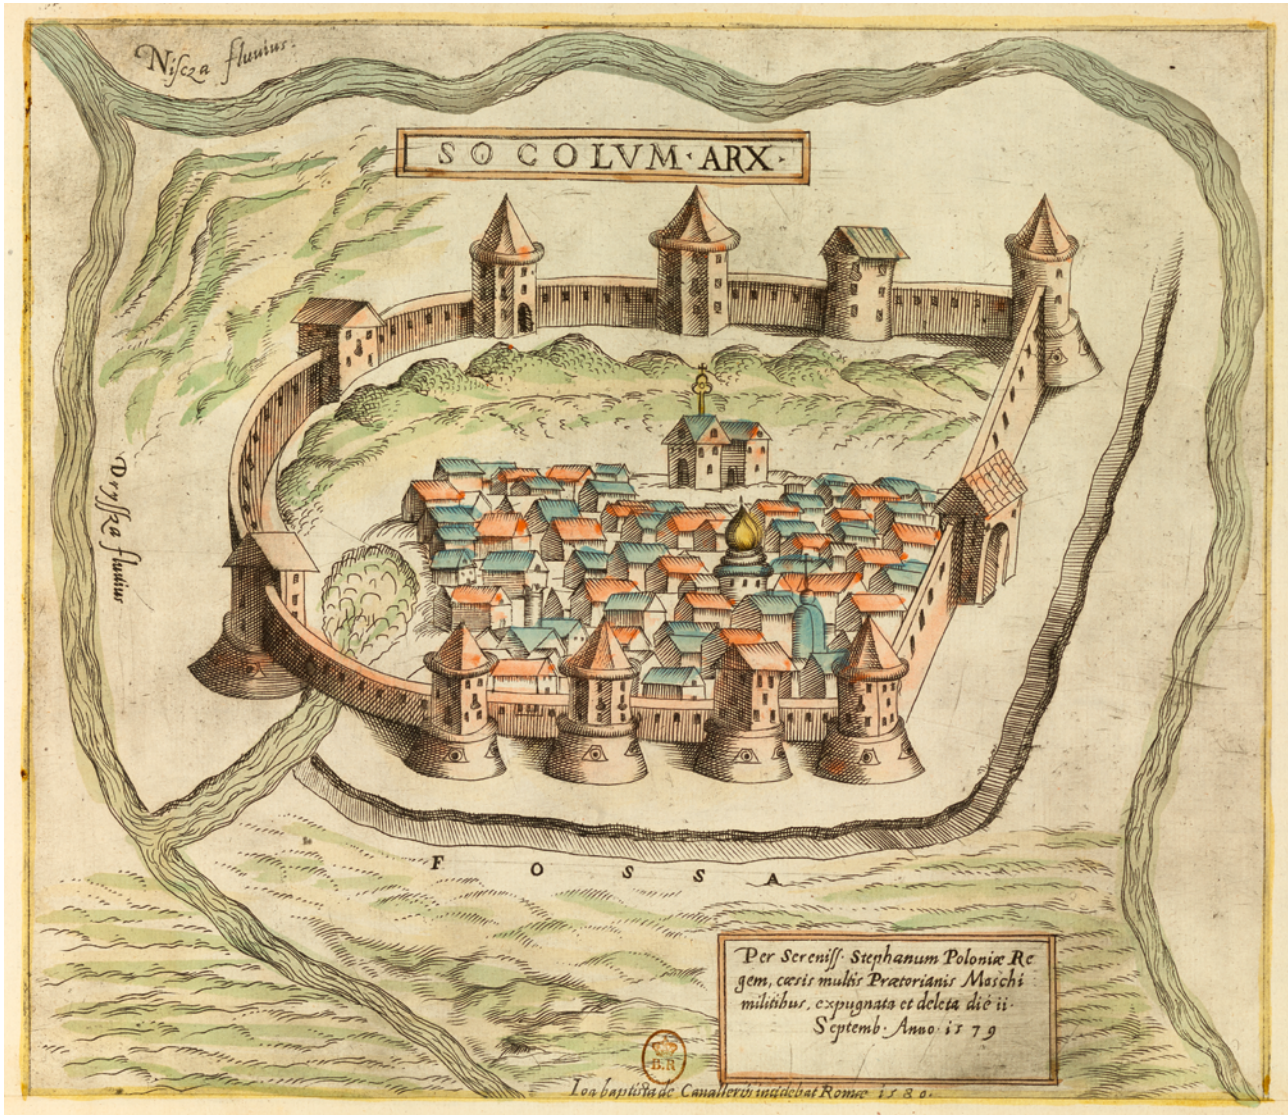 Niſcza fluuius.
SOCOLVM·ARX·
Dryſſa fluuius
F O S S A
Per Sereniſſ. Stephanum Poloniæ Re
gem, cæsis multis Prætorianis Moschi
militibus, expugnata et deleta die ii.
Septemb. Anno. 1579
B.R
Ioa baptista de Cavalleriis incidebat Romæ 1580.